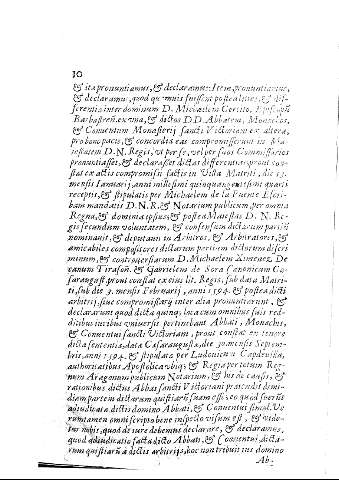 10
& ita pronuntiamus, & declaramus: Item, pronuntiamus,
& declaramus, quod quamuis fuissent postea lites, & dif-
ferentiæ inter dominum D. Michaelem Cercito, Episcopū
Barbastreñ. ex vna, & dictos DD. Abbatem, Monachos,
& Conuentum Monasterij sancti Victoriani ex altera,
pro bono pacis, & concordiæ eas compromisserunt in Ma-
iestatem D. N. Regis, vt per se, vel per suos Commissarios
pronuntiasset, & declarasset dictas differentias prout con-
stat ex actis compromissi factis in Villa Matriti, die 13.
mensis Ianuarij, anni millesimi quinquangentesimi quarti
receptis, & stipulatis per Michaelem de la Puente Escri-
bam mandatis D. N. R. & Notarium publicum, per omnia
Regna, & dominia ipsius, & postea Maiestas D. N. Re-
gis secundum voluntatem, & consensum dictarum partium
nominauit, & deputauit in Arbitros, & Arbitratores, &
amicabiles compositores dictarum partium dictarum differē
tiarum, & controuersiarum D. Michaelem Ximenez De
canum Tirasoñ. & Gabrielem de Sora Canonicum Cæ-
saraugust. prout constat ex eius lit. Regis, sub data Matri-
ti, sub die 3. mensis Februarij, anno 1594. & postea dicti
arbitri, siue compromissarij inter alia pronuntiarunt, &
declararunt quod dicta quinq; loca cum omnibus suis red-
ditibus in cibus vniuersis pertinebant Abbati, Monachis,
& Conuentui sancti Victoriani, prout constat ex tenore
dictæ sententiæ, data Cæsaraugustæ, die 30. mensis Septem-
bris, anni 1594. & stipulata per Ludouicum Capdeuila,
authoritatibus Apostolica vbiq; & Regia per totum Reg-
num Aragonum publicum Notarium, & his de causis, &
rationibus dictus Abbas sancti Victoriani prætendit dimi-
diam partem dictarum quistiarū suam esse: eo quod fuerūt
adiudicatæ dictis domino Abbati, & Conuentui simul. Ve
rumtamen omni scriptobene inspecto visum est, & vide-
tur nobis, quod de iure debemus declarare, & declaramus,
quod adiudicatio facta dicto Abbati, & Conuentui, dicta-
rum quistiarū à dictis arbitris, hoc non tribuit ius domino
Ab-